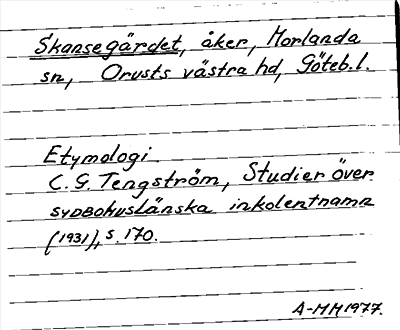 Skansegärdet, åker, Morlanda
sn, Orusts västra hd, Göteb.l.
Etymologi
C. G. Tengström, Studier över
sydbohuslänska inkolentnamn
(1931), s. 170.
A-MM 1977.